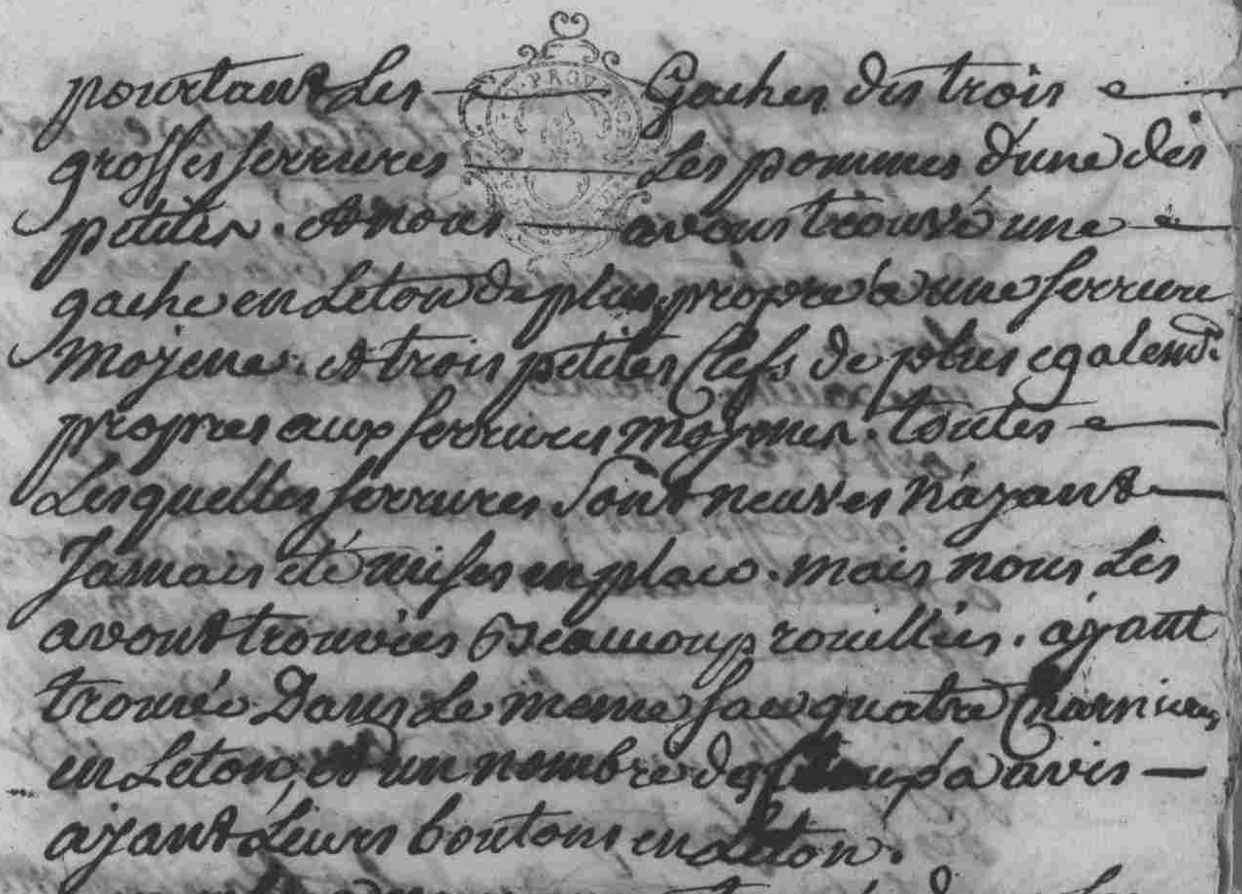 pourtant Les Gaches des trois
PROVENCE
grosses serrures Les pommes d'une des
petites. et nous avons trouvé une
gache en Leton de plus, propre à une serrure
Moyene. et trois petites Clefs de plus egalemt.
propres aux serrures moyenes. toutes
Lesquelles serrures sont neuves n'ayant
Jamais eté mises en place. mais nous Les
avont trouvées Beaucoup rouillées. ayant
trouvé Dans Le meme sac quatre Charnieres
en Leton, et un nombre de Cloup à avis
ayant Leurs boutons en Leton.